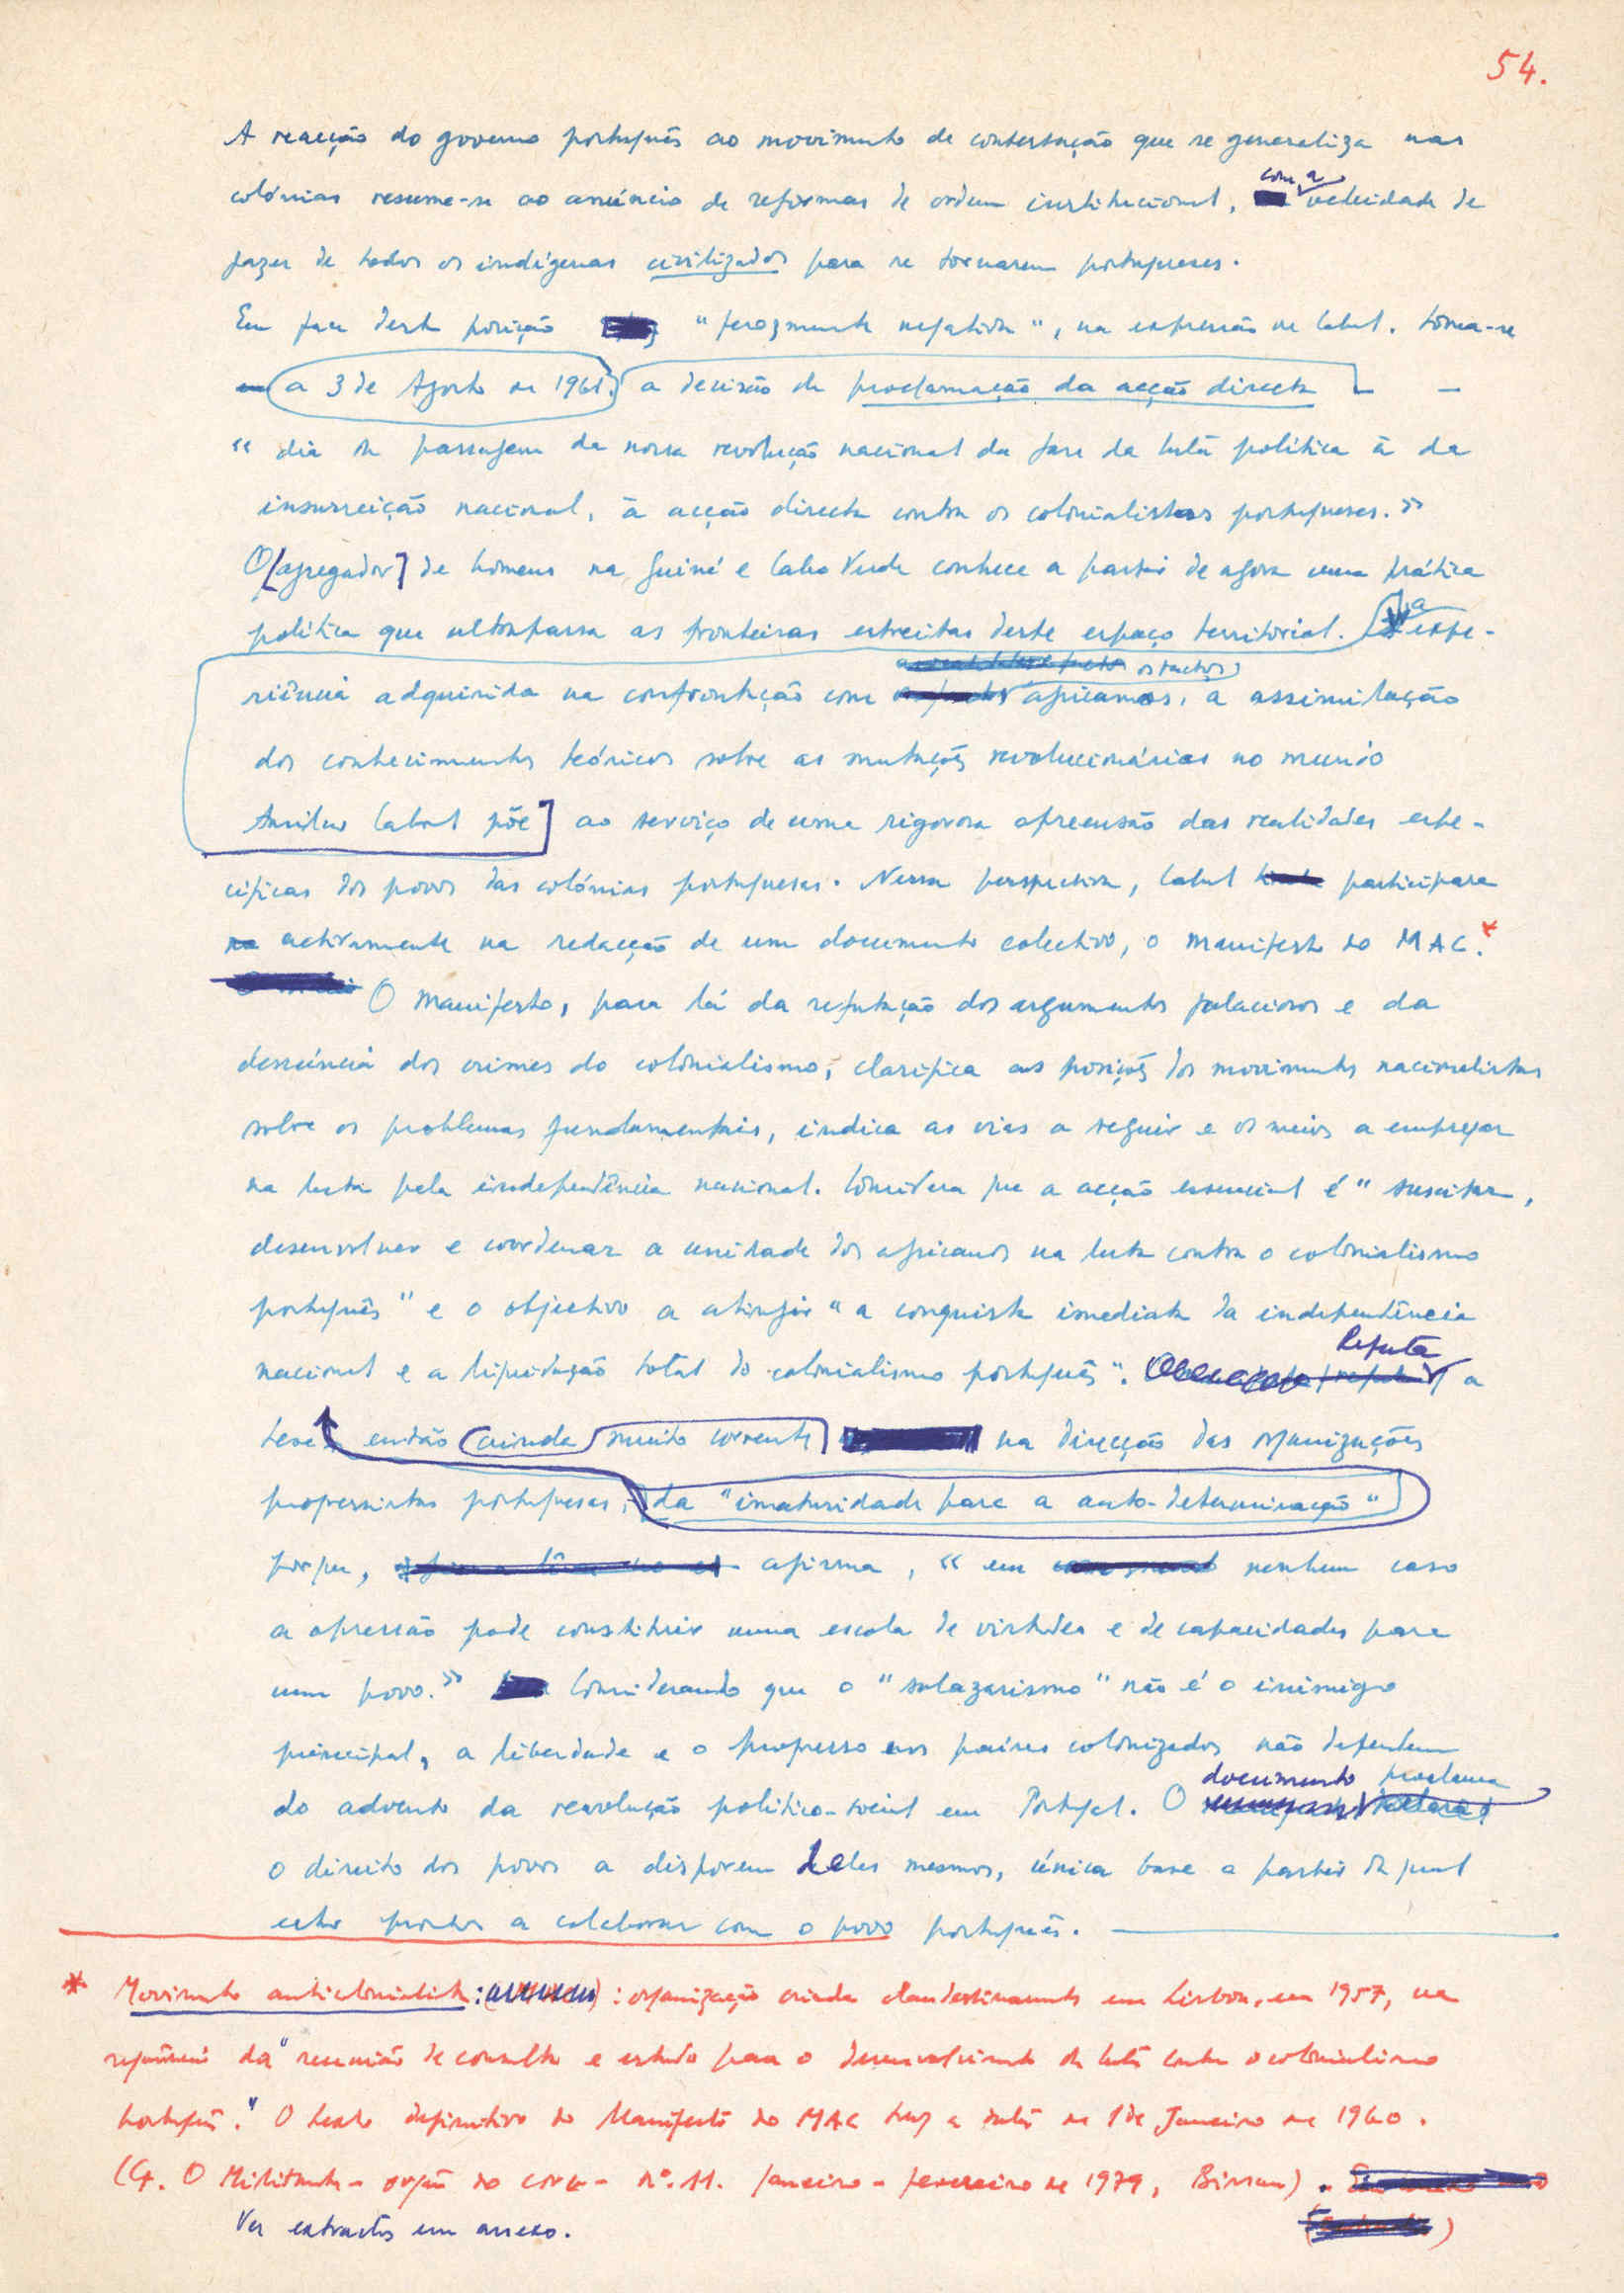 54.
A reacção do governo português ao movimento de contestação que se generaliza nas
colónias resume-se ao anúncio de reformas de ordem institucional, com a veleidade de
fazer de todos os indígenas civilizados para se tornarem portugueses.
Em face desta posição "ferozmente negativa", na expressão de Cabral. toma-se
a 3 de Agosto de 1961. a decisão da proclamação da acção directa —
« dia da passagem da nossa revolução nacional da fase da luta política à da
insurreição nacional, à acção directa contra os colonialistas portugueses. »
O [agregador] de homens na Guiné e Cabo Verde conhece a partir de agora uma prática
política que ultrapassa as fronteiras estreitas deste espaço territorial. a expe-
riência adquirida na confrontação com os factos africanos, a assimilação
dos conhecimentos teóricos sobre as mutações revolucionárias no mundo
Amílcar Cabral põe] ao serviço de uma rigorosa apreensão das realidades espe-
cíficas dos povos das colónias portuguesas. Nessa perspectiva, Cabral participara
activamente na redacção de um documento colectivo, o manifesto do MAC.*
O Manifesto, para lá da refutação dos argumentos falaciosos e da
denúncia dos crimes do colonialismo, clarifica as posições dos movimentos nacionalistas
sobre os problemas fundamentais, indica as vias a seguir e os meios a empregar
na luta pela independência nacional. Considera que a acção essencial é "suscitar,
desenvolver e coordenar a unidade dos africanos na luta contra o colonialismo
português" e o objectivo a atingir "a conquista imediata da independência
nacional e a liquidação total do colonialismo português". Refuta a
tese então ainda muito corrente na direcção das organizações
progressistas portuguesas, da "imaturidade para a auto-determinação"
porque, afirma, « em nenhum caso
a opressão pode constituir uma escola de virtudes e de capacidades para
um povo. » Considerando que o "salazarismo" não é o inimigo
principal, a liberdade e o progresso nos países colonizados não dependem
do advento da revolução político-social em Portugal. O documento proclama
o direito dos povos a disporem deles mesmos, única base a partir da qual
estão prontos a colaborar com o povo português.
* Movimento anticolonialista: organização criada clandestinamente em Lisboa, em 1957, na
sequência da "reunião de consulta e estudo para o desenvolvimento da luta contra o colonialismo
português." O texto definitivo do Manifesto do MAC traz a data de 1 de Janeiro de 1960.
(Cf. O Militante - orgão do - nº. 11. Janeiro - fevereiro de 1979, Bissau).
Ver extractos em anexo.